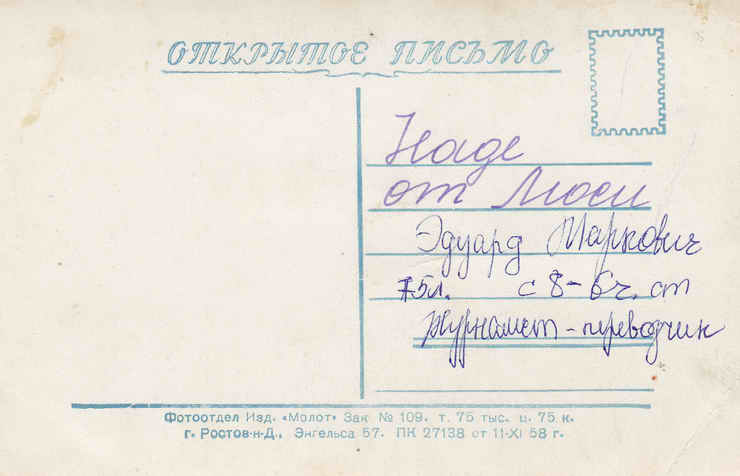 ОТКРЫТОЕ ПИСЬМО
Наде
от Люси
Эдуард Маркович
75л. с 8-6ч. ст
журналист-переводчик
Фотоотдел Изд. «Молот» Зак № 109. т. 75 тыс. ц. 75 к.
г. Ростов-н-Д., Энгельса 57. ПК 27138 от 11-XI 58 г.